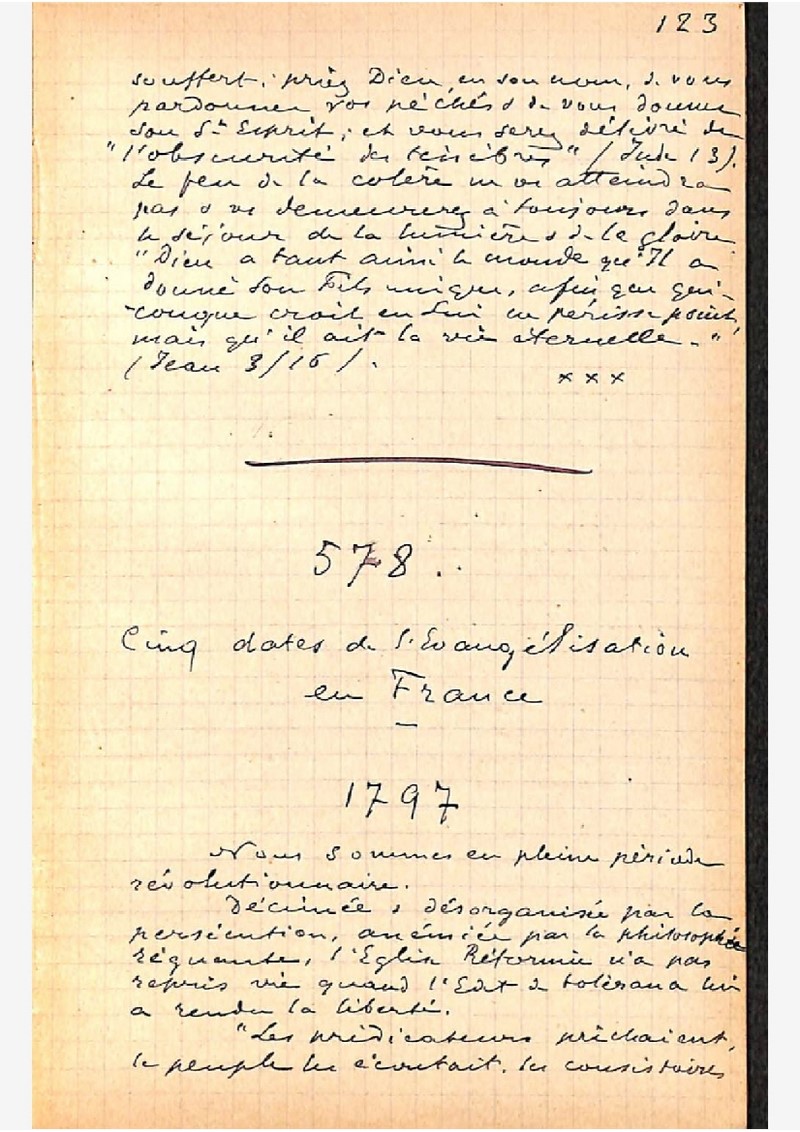 123
souffert ; priez Dieu, en son nom, de vous
pardonner vos péchés & de vous donner
son St Esprit ; et vous serez délivré de
"l'obscurité des ténèbres" (Jude 13).
Le feu de la colère ne vs atteindra
pas & vs demeurerez à toujours dans
le séjour de la lumière & de la gloire.
"Dieu a tant aimé le monde qu'Il a
donné Son Fils unique, afin que qui-
conque croit en Lui ne périsse point,
mais qu'il ait la vie éternelle."
(Jean 3/16).
x x x
578.
Cinq dates de l'Evangélisation
en France
1797
Nous sommes en pleine période
révolutionnaire.
Décimée & désorganisée par la
persécution, anémiée par la philosophie
régnante, l'Eglise Réformée n'a pas
repris vie quand l'Edit de tolérance lui
a rendu la liberté.
"Les prédicateurs prêchaient,
le peuple les écoutait, les consistoires